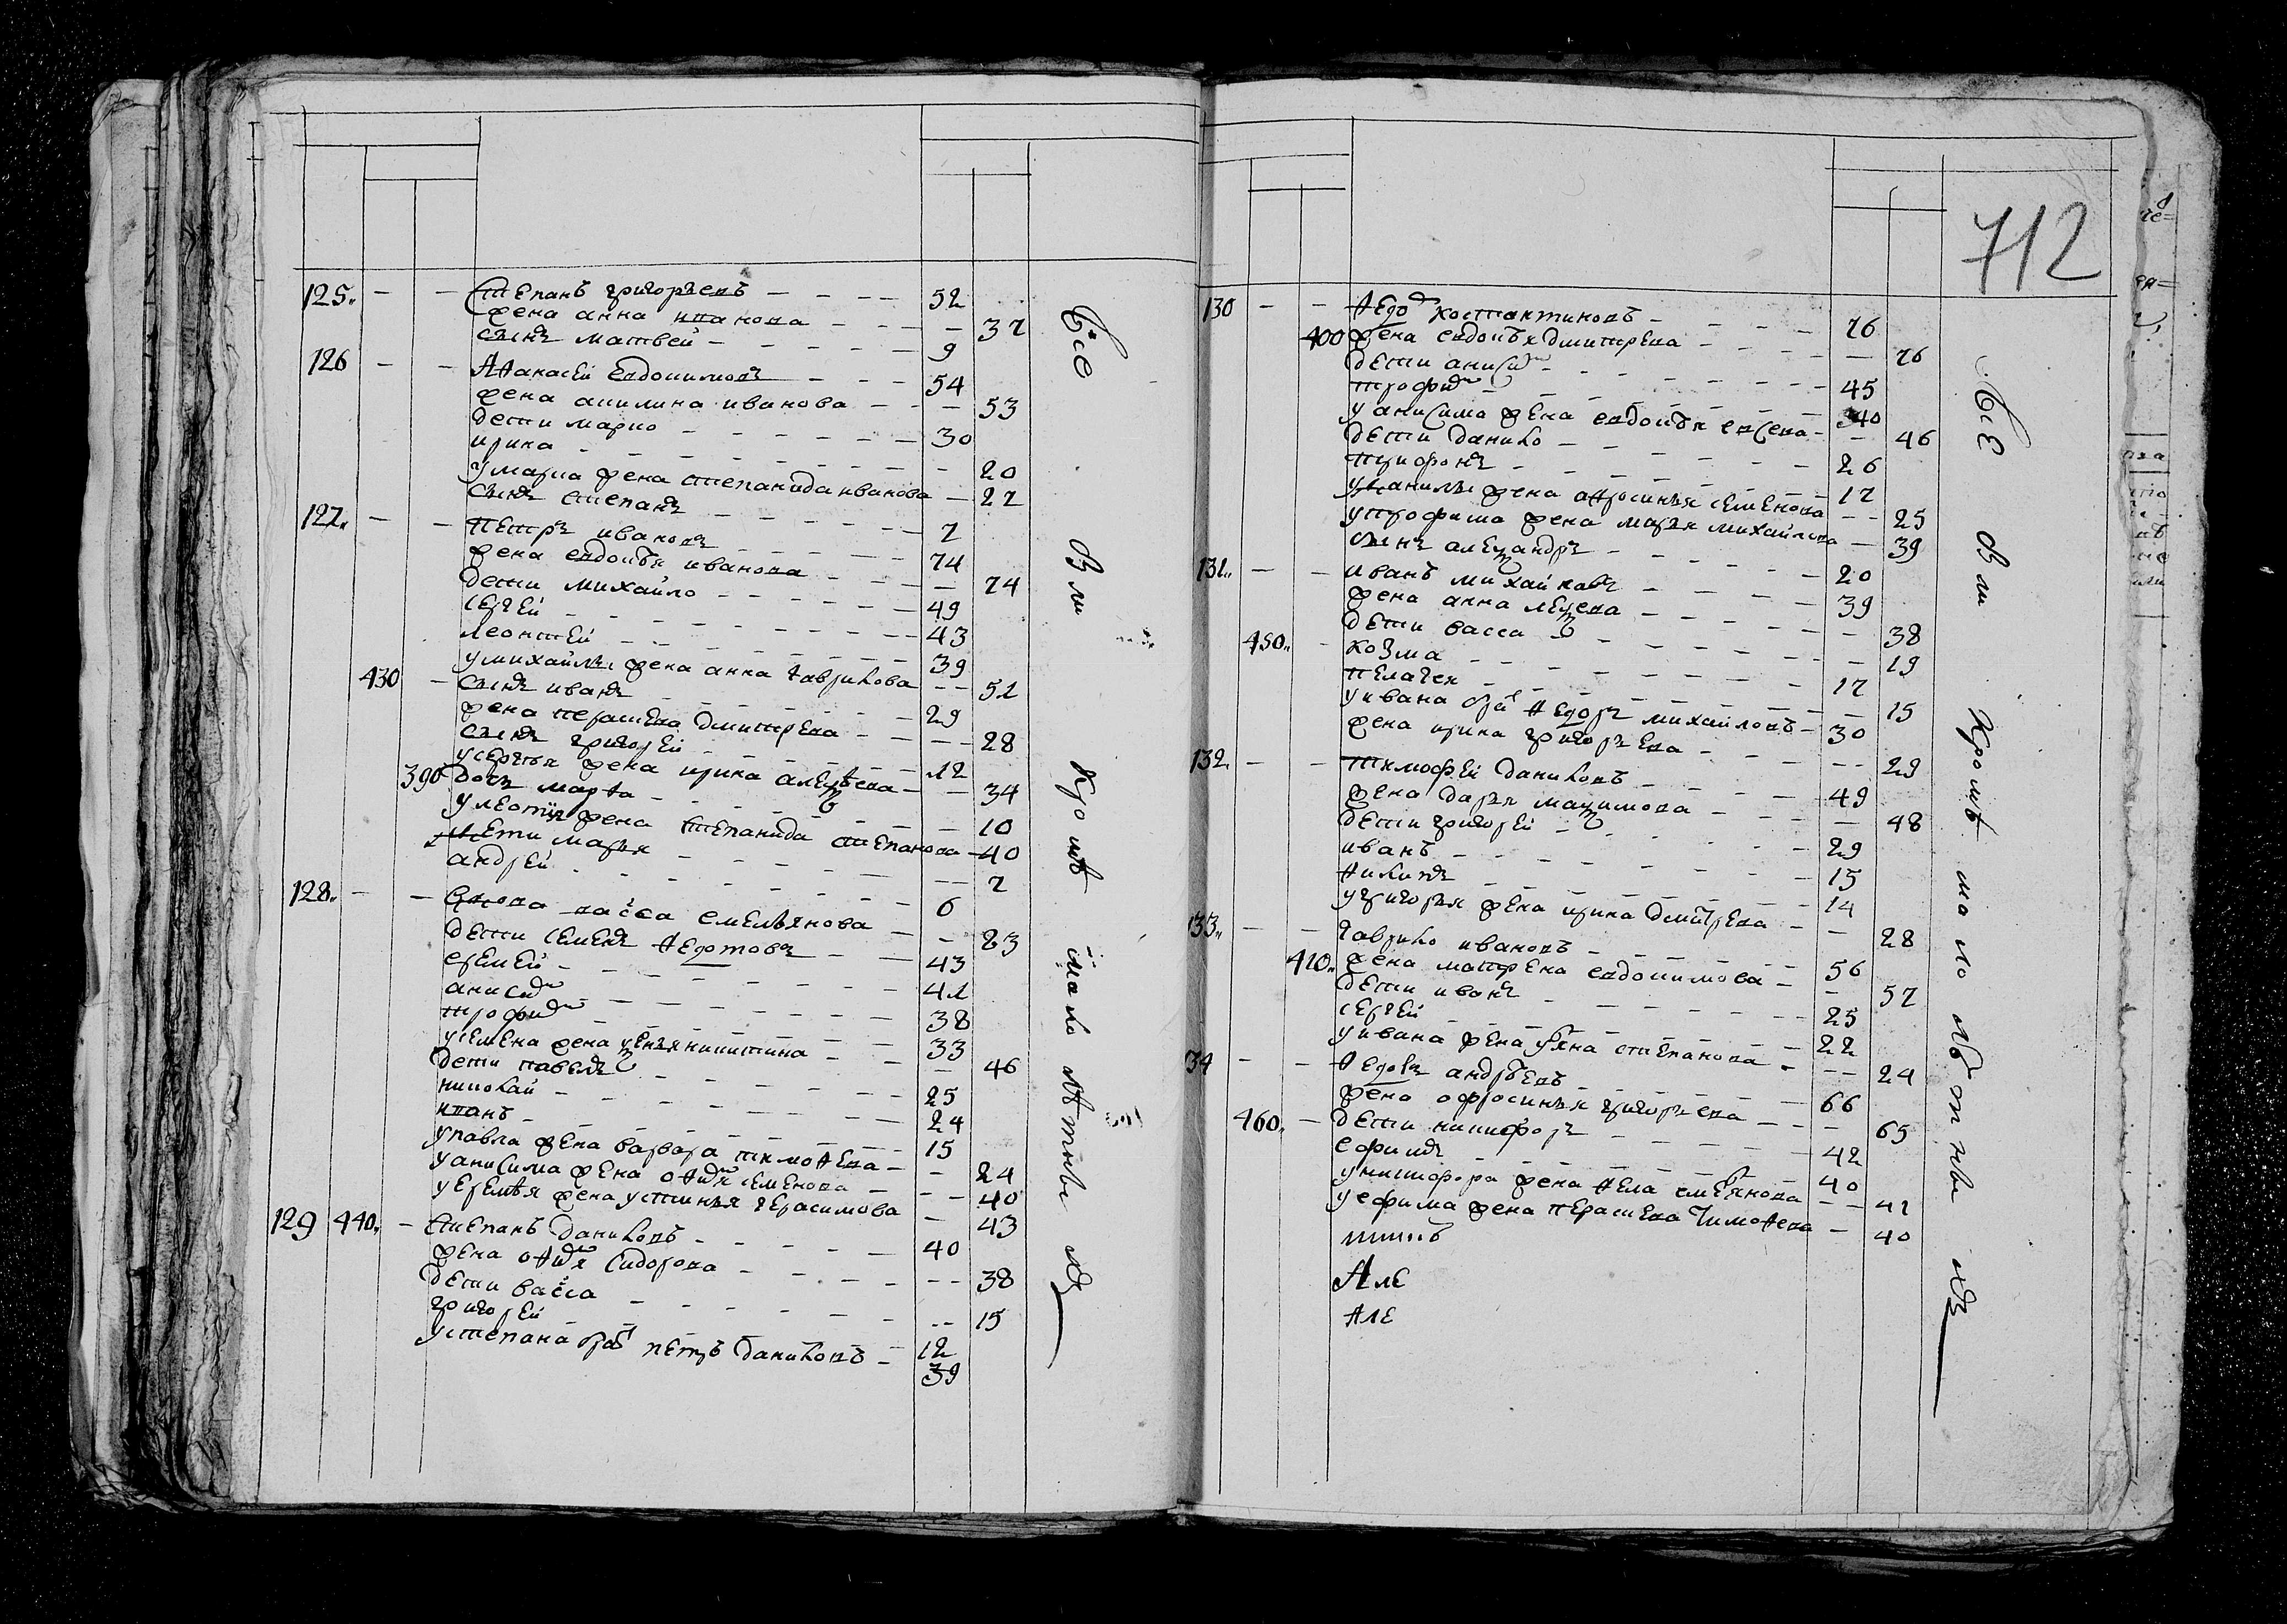 125. Степанъ григорьевъ 52
жена анна ивановa 37
сынъ матвей 9
126 Афанасей Евдокимовъ 54
жена акилина иванова 53
дети марко 30
ирина 20
у марка жена степанида иванова 22
сынъ степанъ 2
127. Петръ ивановъ 74
жена евдокѣя иванова 74
дети михайло 49
сергей 43
леонтей 39
у михайлы жена анна гаврилова 52
430 сынъ иванъ 29
жена парасковея дмитрева 28
сынъ григорей 12
у сергѣя жена ирина алексѣева 34
390 дочь марфа 10
у леонтия жена степанида степанова 40
дети марья 7
андрей 6
128. вдова васса емельянова 83
дети семенъ федотовъ 43
еремей 42
анисим 38
трофим 33
у семена жена ксенья никитина 46
дети павелъ 25
николай 24
иванъ 15
у павла жена варвара тимофева 24
у анисима жена офимья семенова 40
у еремѣя жена устинья герасимова 43
129 440. Степанъ даниловъ 40
жена офимья сидорова 38
дети васса 15
григорей 12
у степана братъ петръ даниловъ 39
Все
в ли
кромѣ
мало
лѣтные
712
130 федор костантиновъ 76
400 жена евдокѣя дмитрева 76
дети анисим 45
трофим 40
у анисима жена евдокѣя евсева 46
дети данило 26
трифонъ 17
у данилы жена афросинья семенова 25
у трофима жена марья михайлова 39
сынъ александръ 20
131. иванъ михайловъ 39
жена анна алексева 38
дети васса 19
450. козма 17
пелагея 15
у ивана бра федоръ михайловъ 30
жена ирина григорьева 29
132. тимофей даниловъ 49
жена дарья максимова 48
дети григорей 29
иванъ 15
филипъ 14
у григорья жена ирина дмитрева 28
133. гаврило ивановъ 56
410. жена матрена евдокимова 57
дети иванъ 25
сергей 22
у ивана жена ульяна степанова 24
134 федоръ андрѣевъ 66
жена офросинья григорьева 65
460. дети никифоръ 42
ефимъ 40
у никифора жена фекла емельянова 41
у ефима жена парасковея тимофева 40
Але
Але
Все
в ли
кромѣ
мало
лѣтные